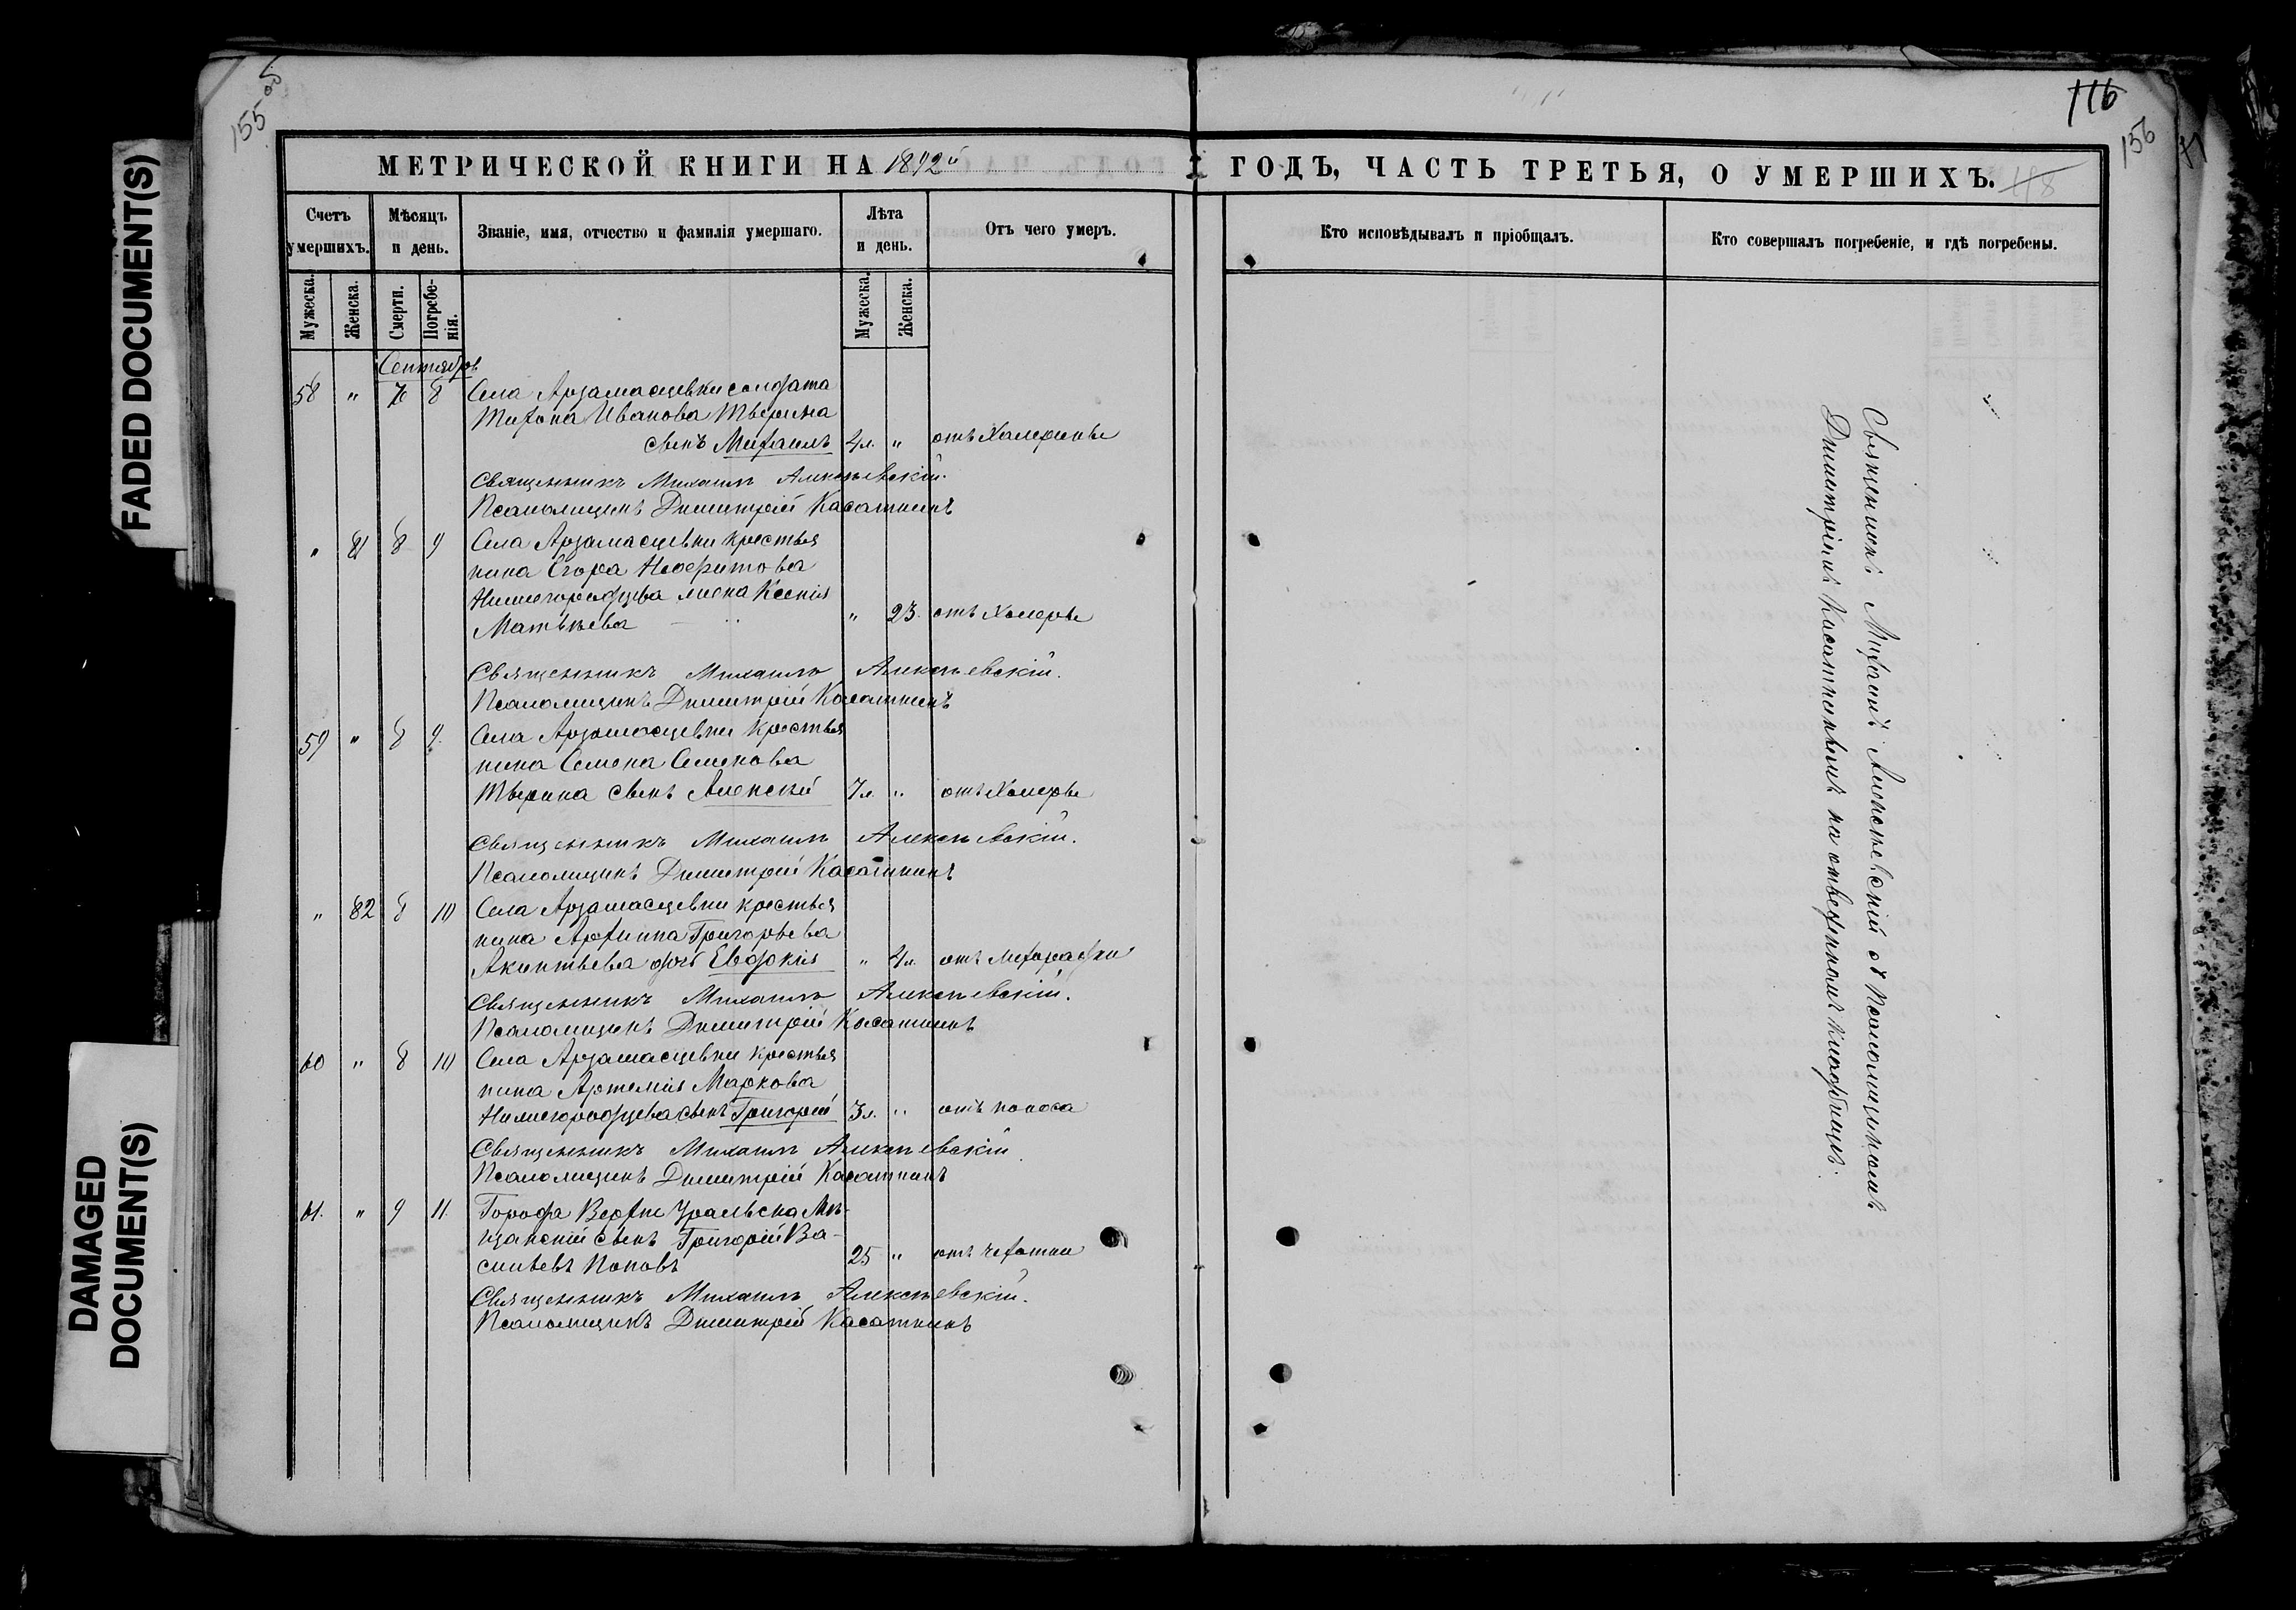 FADED DOCUMENT(S)
DAMAGED
DOCUMENT(S)
155
116
156
118
МЕТРИЧЕСКОЙ КНИГИ НА 1892й ГОДЪ, ЧАСТЬ ТРЕТЬЯ, О УМЕРШИХЪ.
Счетъ умершихъ.
Мѣсяцъ и день.
Званіе, имя, отчество и фамилія умершаго.
Лѣта и день.
Отъ чего умеръ.
Кто исповѣдывалъ и пріобщалъ.
Кто совершалъ погребеніе, и гдѣ погребены.
Мужеска.
Женска.
Смерти.
Погребе-
нія.
Мужеска.
Женска.
Сентябрь
58 " 7 8 Села Арзамасцевки солдата
Тихона Иванова Тверина
сынъ Михаилъ 4л. " отъ Холерины
Священникъ Михаилъ Алексѣевскій.
Псаломщикъ Димитрій Касаткинъ
" 81 8 9 Села Арзамасцевки крестья
нина Егора Неофитова
Нижегородцева жена Ксенія
Матвѣева " 23. отъ Холеры
Священникъ Михаилъ Алексѣевскій.
Псаломщикъ Димитрій Касаткинъ
59 " 8 9. Села Арзамасцевки крестья
нина Семена Семенова
Тверина сынъ Алексѣй 7л. " отъ Холеры
Священникъ Михаилъ Алексѣевскій.
Псаломщикъ Димитрій Касаткинъ
" 82 8 10 Села Арзамасцевки крестья
нина Архиппа Григорьева
Акинтьева дочь Евдокія " 4л. отъ лихорадки
Священникъ Михаилъ Алексѣевскій.
Псаломщикъ Димитрій Касаткинъ
60 " 8 10 Села Арзамасцевки крестья
нина Артемія Маркова
Нижегородцева сынъ Григорій 3л. " отъ поноса
Священникъ Михаилъ Алексѣевскій
Псаломщикъ Димитрій Касаткинъ
61. " 9 11. Города Верхне Уральска Мѣ-
щанскій сынъ Григорій Ва-
сильевъ Поповъ 25 " отъ чахотки
Священникъ Михаилъ Алексѣевскій.
Псаломщикъ Димитрій Касаткинъ
Священникъ Михаилъ Алексѣевскій съ Псаломщикомъ
Димитріемъ Касаткинымъ на отведенномъ кладбищѣ.